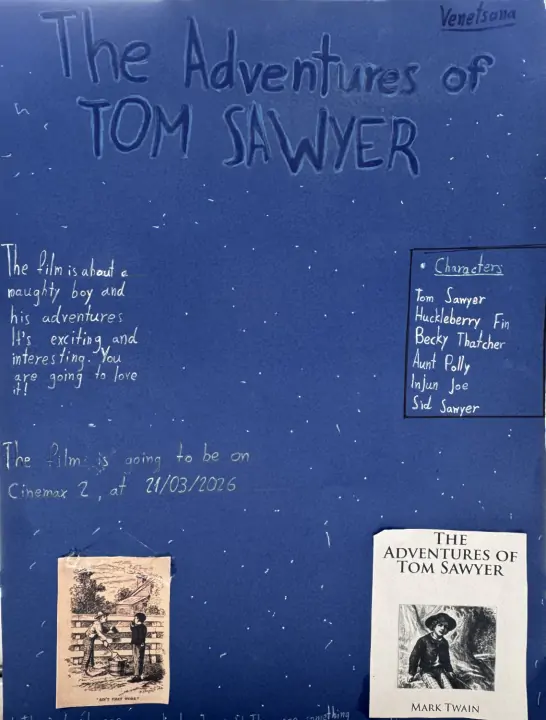 Venetsana
The Adventures of
TOM SAWYER
The film is about a
naughty boy and
his adventures
It's exciting and
interesting. You
are going to love
it!
• Characters
Tom Sawyer
Huckleberry Fin
Becky Thatcher
Aunt Polly
Injun Joe
Sid Sawyer
The film is going to be on
Cinemax 2, at 21/03/2026
"AIN'T THAT WORK?"
THE
ADVENTURES OF
TOM SAWYER
MARK TWAIN
something